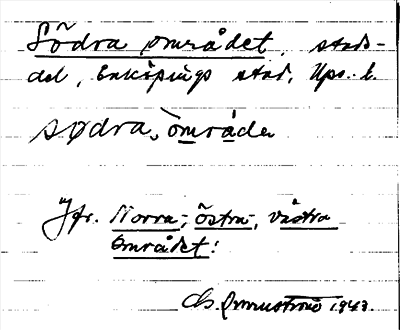 Södra området, stads-
del, Enköpings stad, Ups. l.
södra, områdeṭ
Jfr. Norra-, östra-, västra
området!
1943.